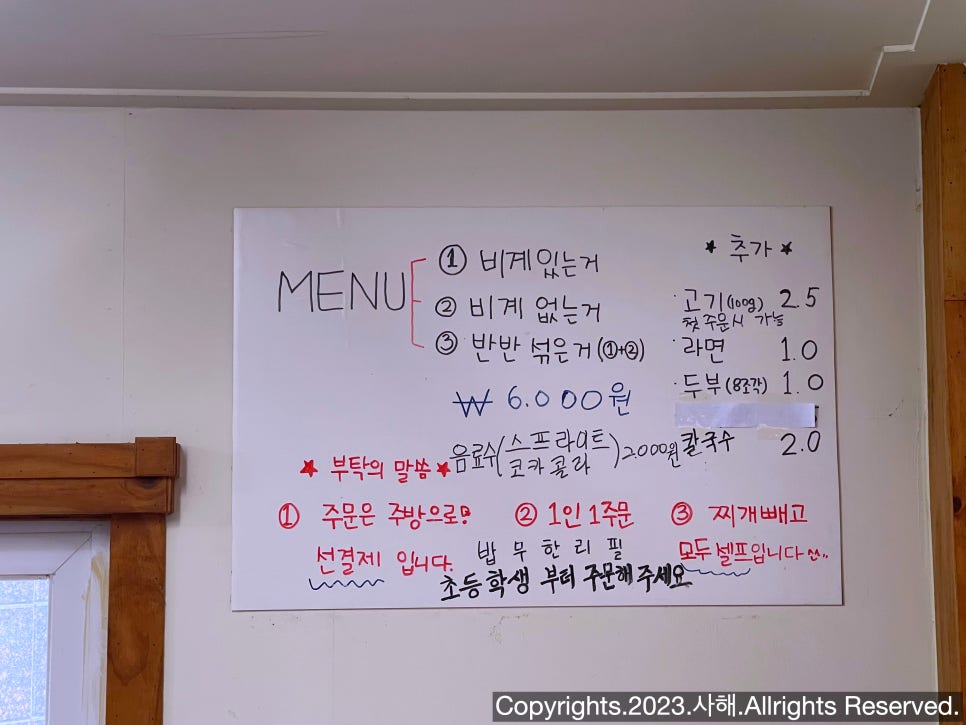 MENU
① 비계있는거
② 비계 없는거
③ 반반 섞은거 (①+②)
₩ 6.000원
음료수(스프라이트 코카콜라) 2.000원
★ 추가 ★
· 고기(100g) 2.5
첫 주문시 가능
· 라면 1.0
· 두부(8조각) 1.0
칼국수 2.0
★ 부탁의 말씀 ★
① 주문은 주방으로!
선결제 입니다.
② 1인 1주문
밥 무한리필
초등학생 부터 주문해 주세요
③ 찌개빼고
모두 셀프입니다
Copyrights.2023.사해.Allrights Reserved.